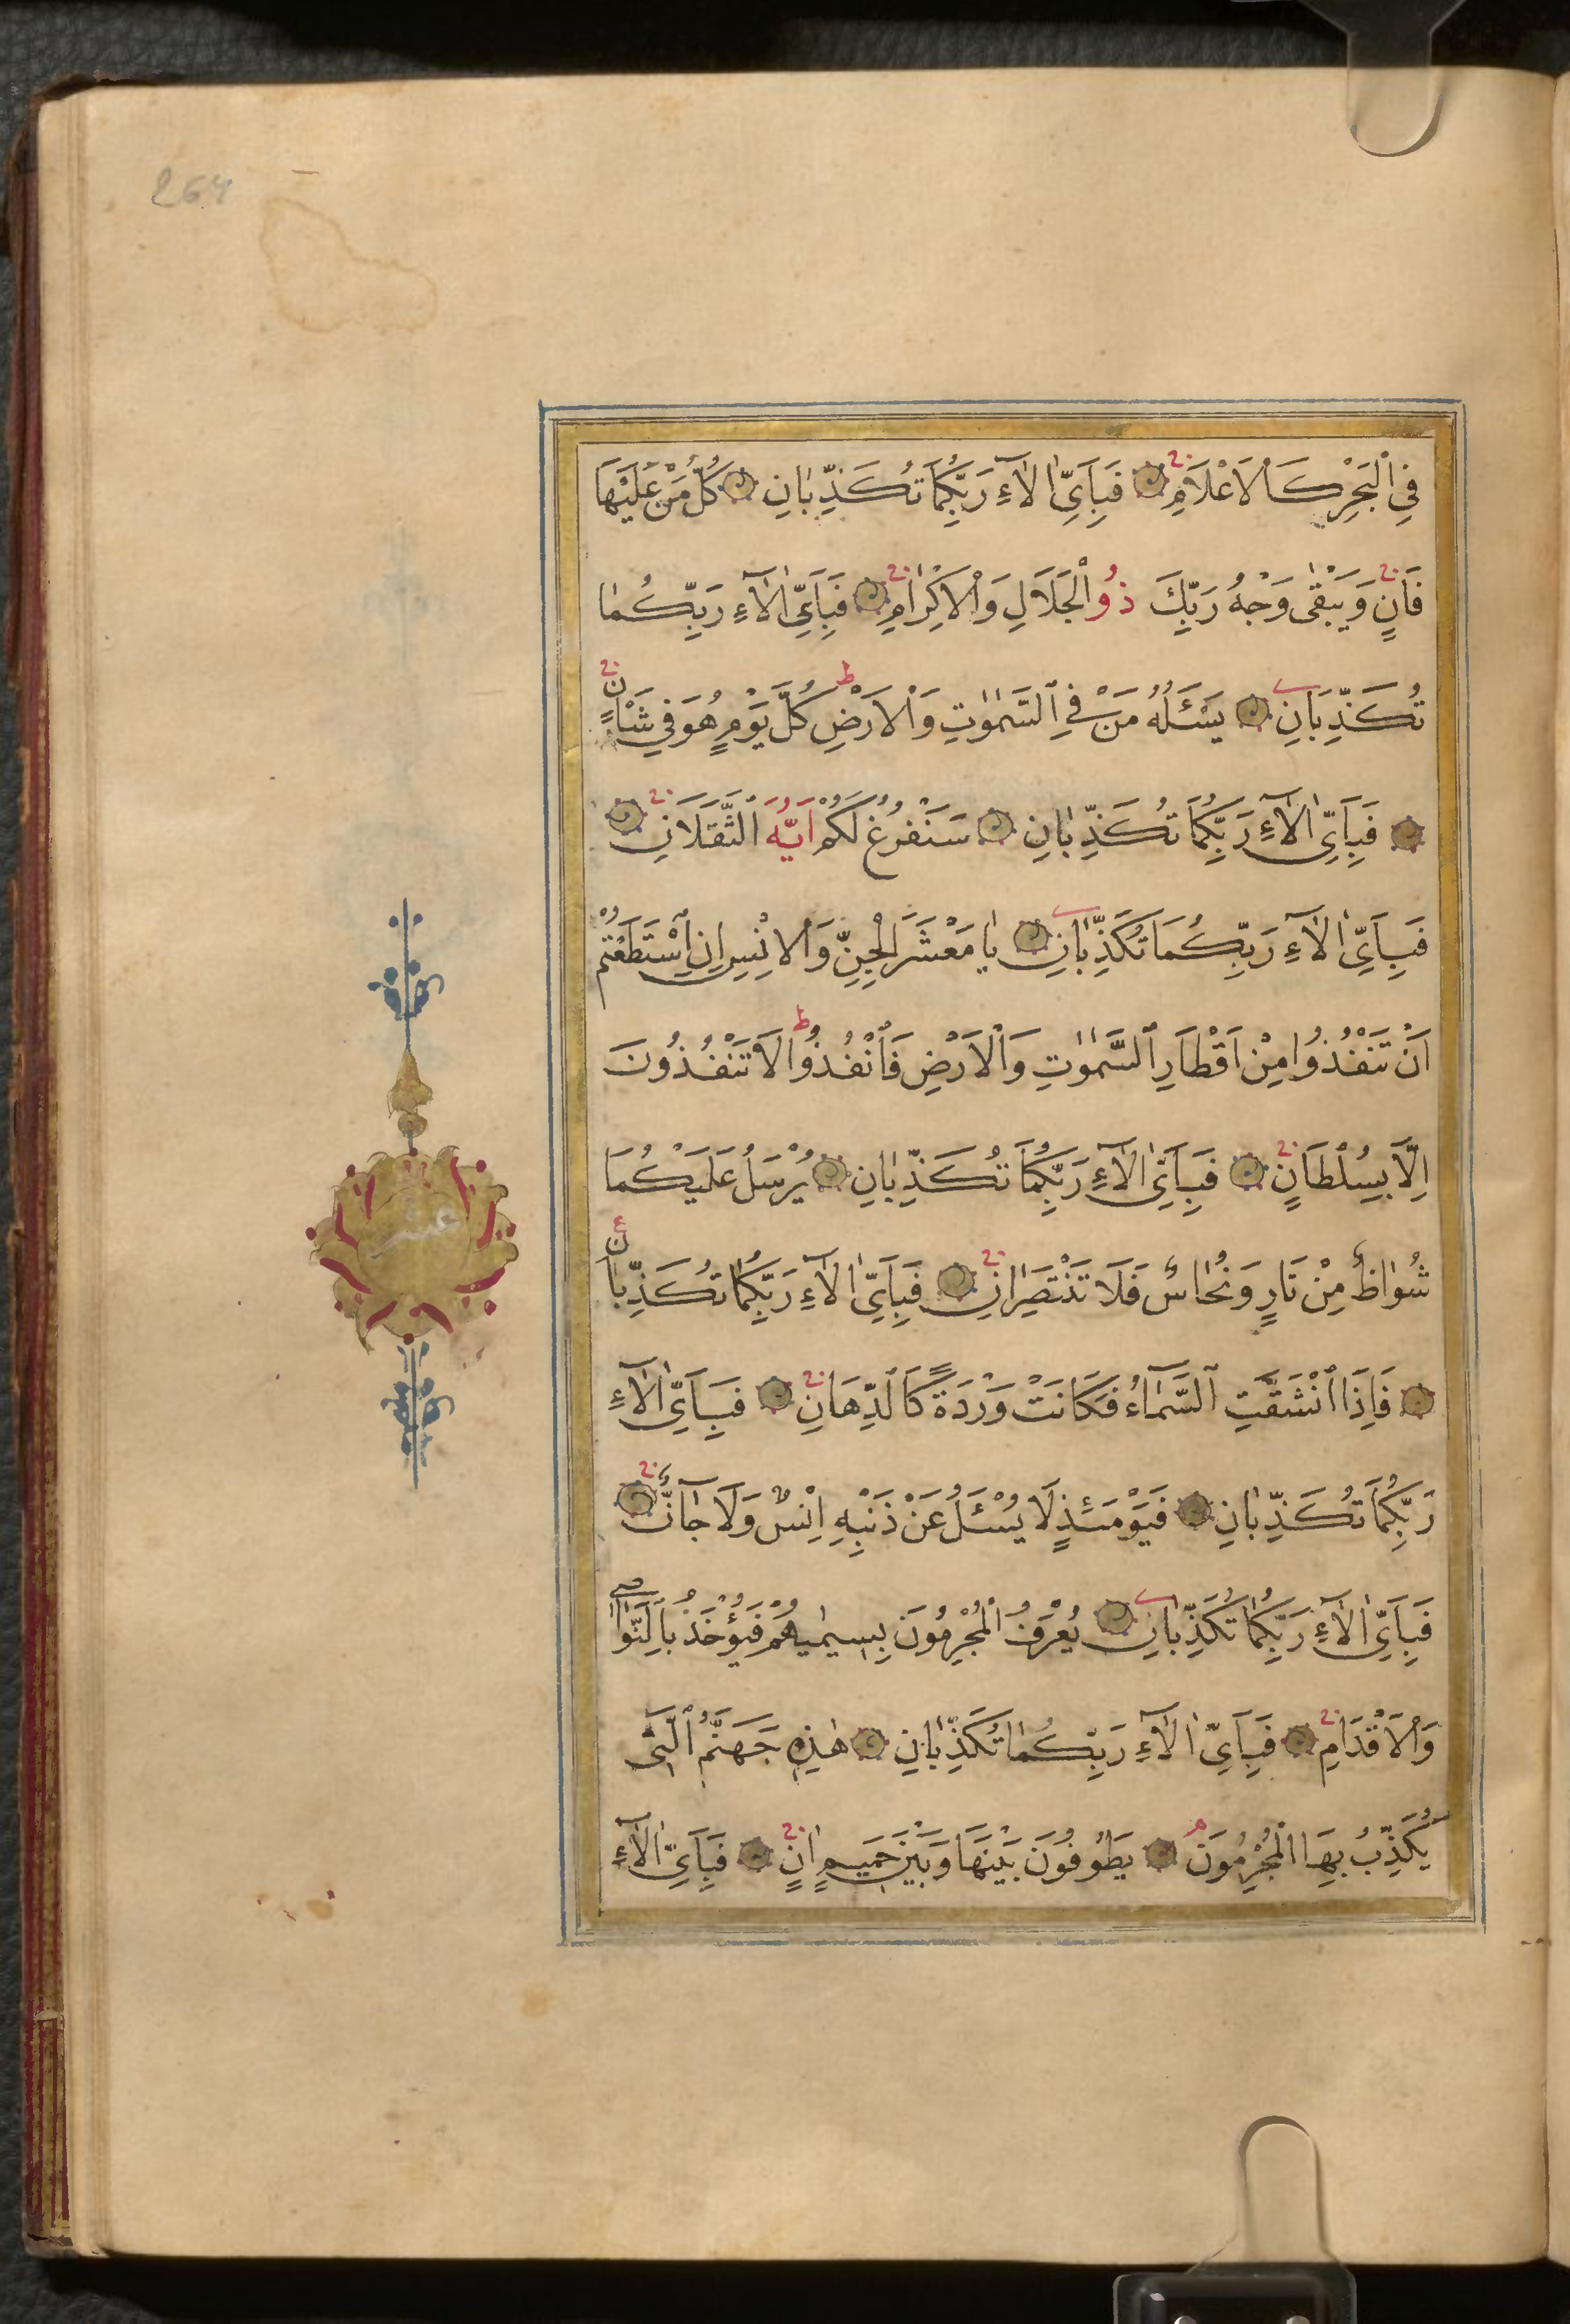 264
فِي ٱلْبَحْرِ كَٱلْاَعْلَامِ فَبِاَيِّ اٰلَآءِ رَبِّكُمَا تُكَذِّبٰانِ كُلُّ مَنْ عَلَيْهَا
فَانٍ وَيَبْقٰى وَجْهُ رَبِّكَ ذُو ٱلْجَلَالِ وَٱلْاِكْرٰامِ فَبِاَيِّ اٰلَآءِ رَبِّكُمٰا
تُكَذِّبَانِ يَسْـَٔلُهُ مَنْ فِي ٱلسَّمٰوٰتِ وَٱلْاَرْضِ ط كُلَّ يَوْمٍ هُوَ فِي شَأْنٍ
فَبِاَيِّ اٰلَآءِ رَبِّكُمَا تُكَذِّبٰانِ سَنَفْرُغُ لَكُمْ اَيُّهَ ٱلثَّقَلَانِ
فَبِاَيِّ اٰلَآءِ رَبِّكُمَا تُكَذِّبٰانِ يٰا مَعْشَرَ ٱلْجِنِّ وَٱلْاِنْسِ اِنِ ٱسْتَطَعْتُمْ
اَنْ تَنْفُذُوا مِنْ اَقْطٰارِ ٱلسَّمٰوٰتِ وَٱلْاَرْضِ فَٱنْفُذُوا ط لَا تَنْفُذُونَ
اِلَّا بِسُلْطَانٍ فَبِاَيِّ اٰلَآءِ رَبِّكُمَا تُكَذِّبٰانِ يُرْسَلُ عَلَيْكُمَا
شُوٰاظٌ مِنْ نَارٍ وَنُحٰاسٌ فَلَا تَنْتَصِرٰانِ فَبِاَيِّ اٰلَآءِ رَبِّكُمٰا تُكَذِّبٰانِ
فَاِذَا ٱنْشَقَّتِ ٱلسَّمٰآءُ فَكَانَتْ وَرْدَةً كَٱلدِّهَانِ فَبِاَيِّ اٰلَآءِ
رَبِّكُمَا تُكَذِّبٰانِ فَيَوْمَئِذٍ لَا يُسْـَٔلُ عَنْ ذَنْبِهِ اِنْسٌ وَلَا جٰآنٌّ
فَبِاَيِّ اٰلَآءِ رَبِّكُمٰا تُكَذِّبٰانِ يُعْرَفُ ٱلْمُجْرِمُونَ بِسِيمٰيهُمْ فَيُؤْخَذُ بِٱلنَّوٰاصِي
وَٱلْاَقْدَامِ فَبِاَيِّ اٰلَآءِ رَبِّكُمٰا تُكَذِّبٰانِ هٰذِهِ جَهَنَّمُ ٱلَّتِى
يُكَذِّبُ بِهَا ٱلْمُجْرِمُونَ يَطُوفُونَ بَيْنَهَا وَبَيْنَ حَمِيمٍ اٰنٍ فَبِاَيِّ اٰلَآءِ
عشر